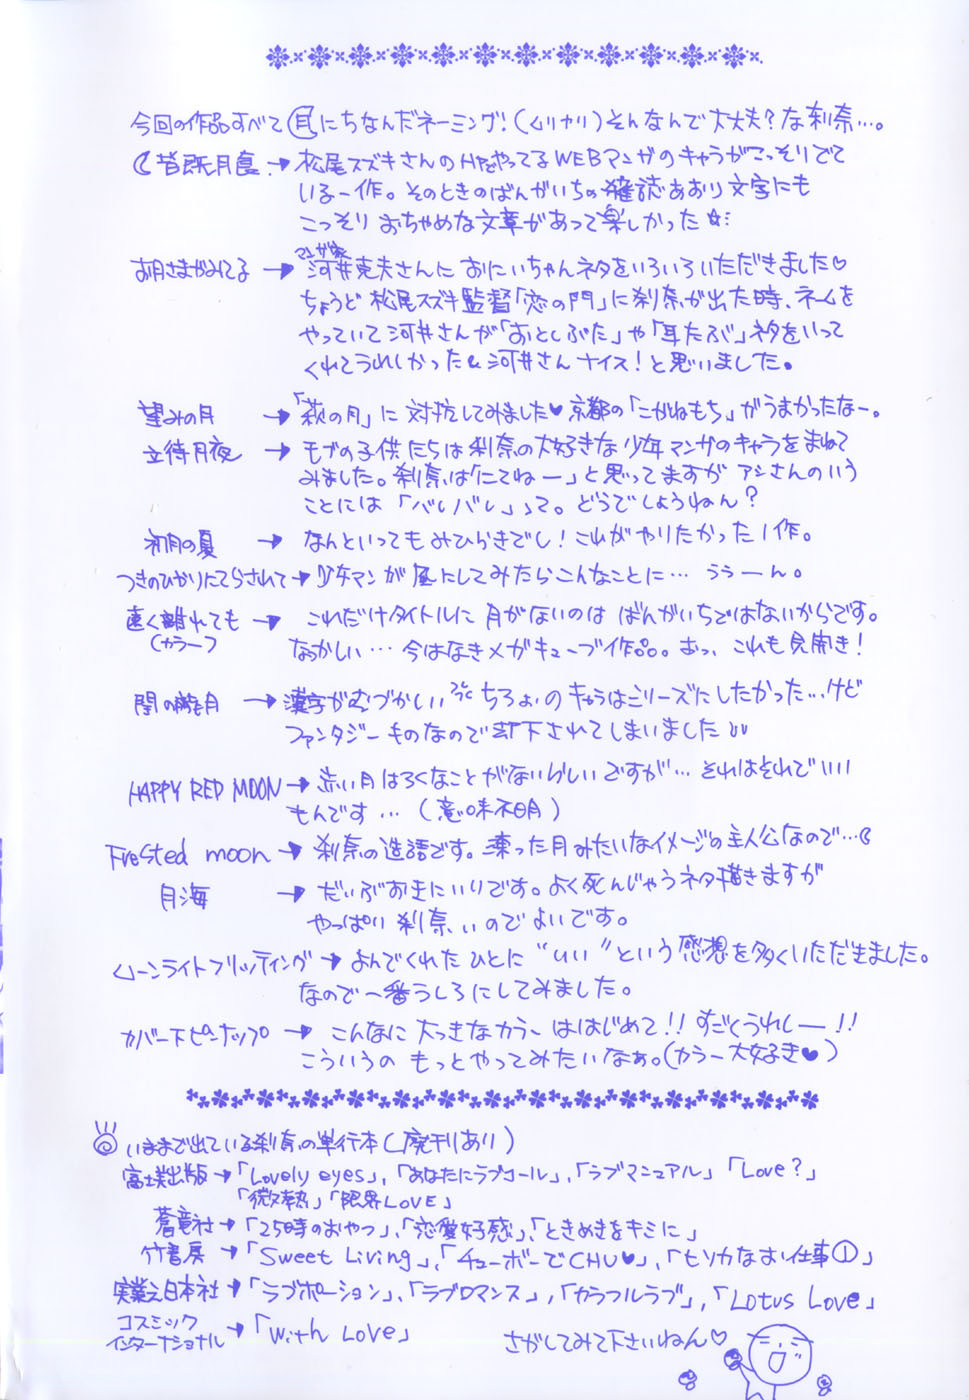 今回の作品すべて月にちなんだネーミング!(ムリヤリ)そんなんで大丈夫?な刹奈…。
皆既月食→松尾スズキさんのHPでやってるWEBマンガのキャラがこっそりでて
いる一作。そのときのばんがいちの雑誌あおり文字にも
こっそりおちゃめな文章があって楽しかった
お月さまがみてる→マンガ家河井克夫さんにおにいちゃんネタをいろいろいただきました♡
ちょうど松尾スズキ監督「恋の門」に刹奈が出た時、ネームを
やっていて河井さんが「おとしぶた」や「耳たぶ」ネタをいって
くれてうれしかった 河井さんナイス!と思いました。
望みの月→「萩の月」に対抗してみました♥京都の「こがねもち」がうまかったなー。
立待月夜→モブの子供たちは刹奈の大好きな少年マンガのキャラをまねて
みました。刹奈は「にてねー」と思ってますがアシさんのいう
ことには「バレバレ」って。どうでしょうねん?
初月の夏→なんといってもみひらきでし!これがやりたかった1作。
つきのひかりにてらされて→少年マンガ風にしてみたらこんなことに…ううーん。
遠く離れても(カラー)→これだけタイトルに月がないのはばんがいちではないからです。
なつかしい…今はなきメガキューブ作品。おっ、これも見開き!
闇の 月→漢字がむづかしい ちろょいのキャラはシリーズにしたかった…けど
ファンタジーものなので却下されてしまいました
HAPPY RED MOON→赤い月はろくなことがないらしいですが…それはそれでいい
もんです…(意味不明)
Frested moon→刹奈の造語です。凍った月みたいなイメージの主人公なので…
月海→だいぶおきにいりです。よく死んじゃうネタ描きますが
やっぱり刹奈、いのでよいです。
ムーンライトフリッティング→よんでくれたひとに"いい"という感想を多くいただきました。
なので一番うしろにしてみました。
カバー下ピンナップ→こんなに大っきなカラーははじめて!!すごくうれしー!!
こういうのもっとやってみたいなぁ。(カラー大好き♥)
いままで出ている刹奈の単行本(廃刊あり)
富士美出版→「Lovely eyes」、「あなたにラブコール」、「ラブマニュアル」「Love?」
「微熱」「限界LOVE」
蒼竜社→「25時のおやつ」、「恋愛好感」、「ときめきをキミに」
竹書房→「Sweet Living」、「チューボーでCHU♥」、「ヒソカなお仕事①」
実業之日本社→「ラブポーション」、「ラブロマンス」、「カラフルラブ」、「Lotus Love」
コスミックインターナショナル→「With Love」
さがしてみて下さいねん♡